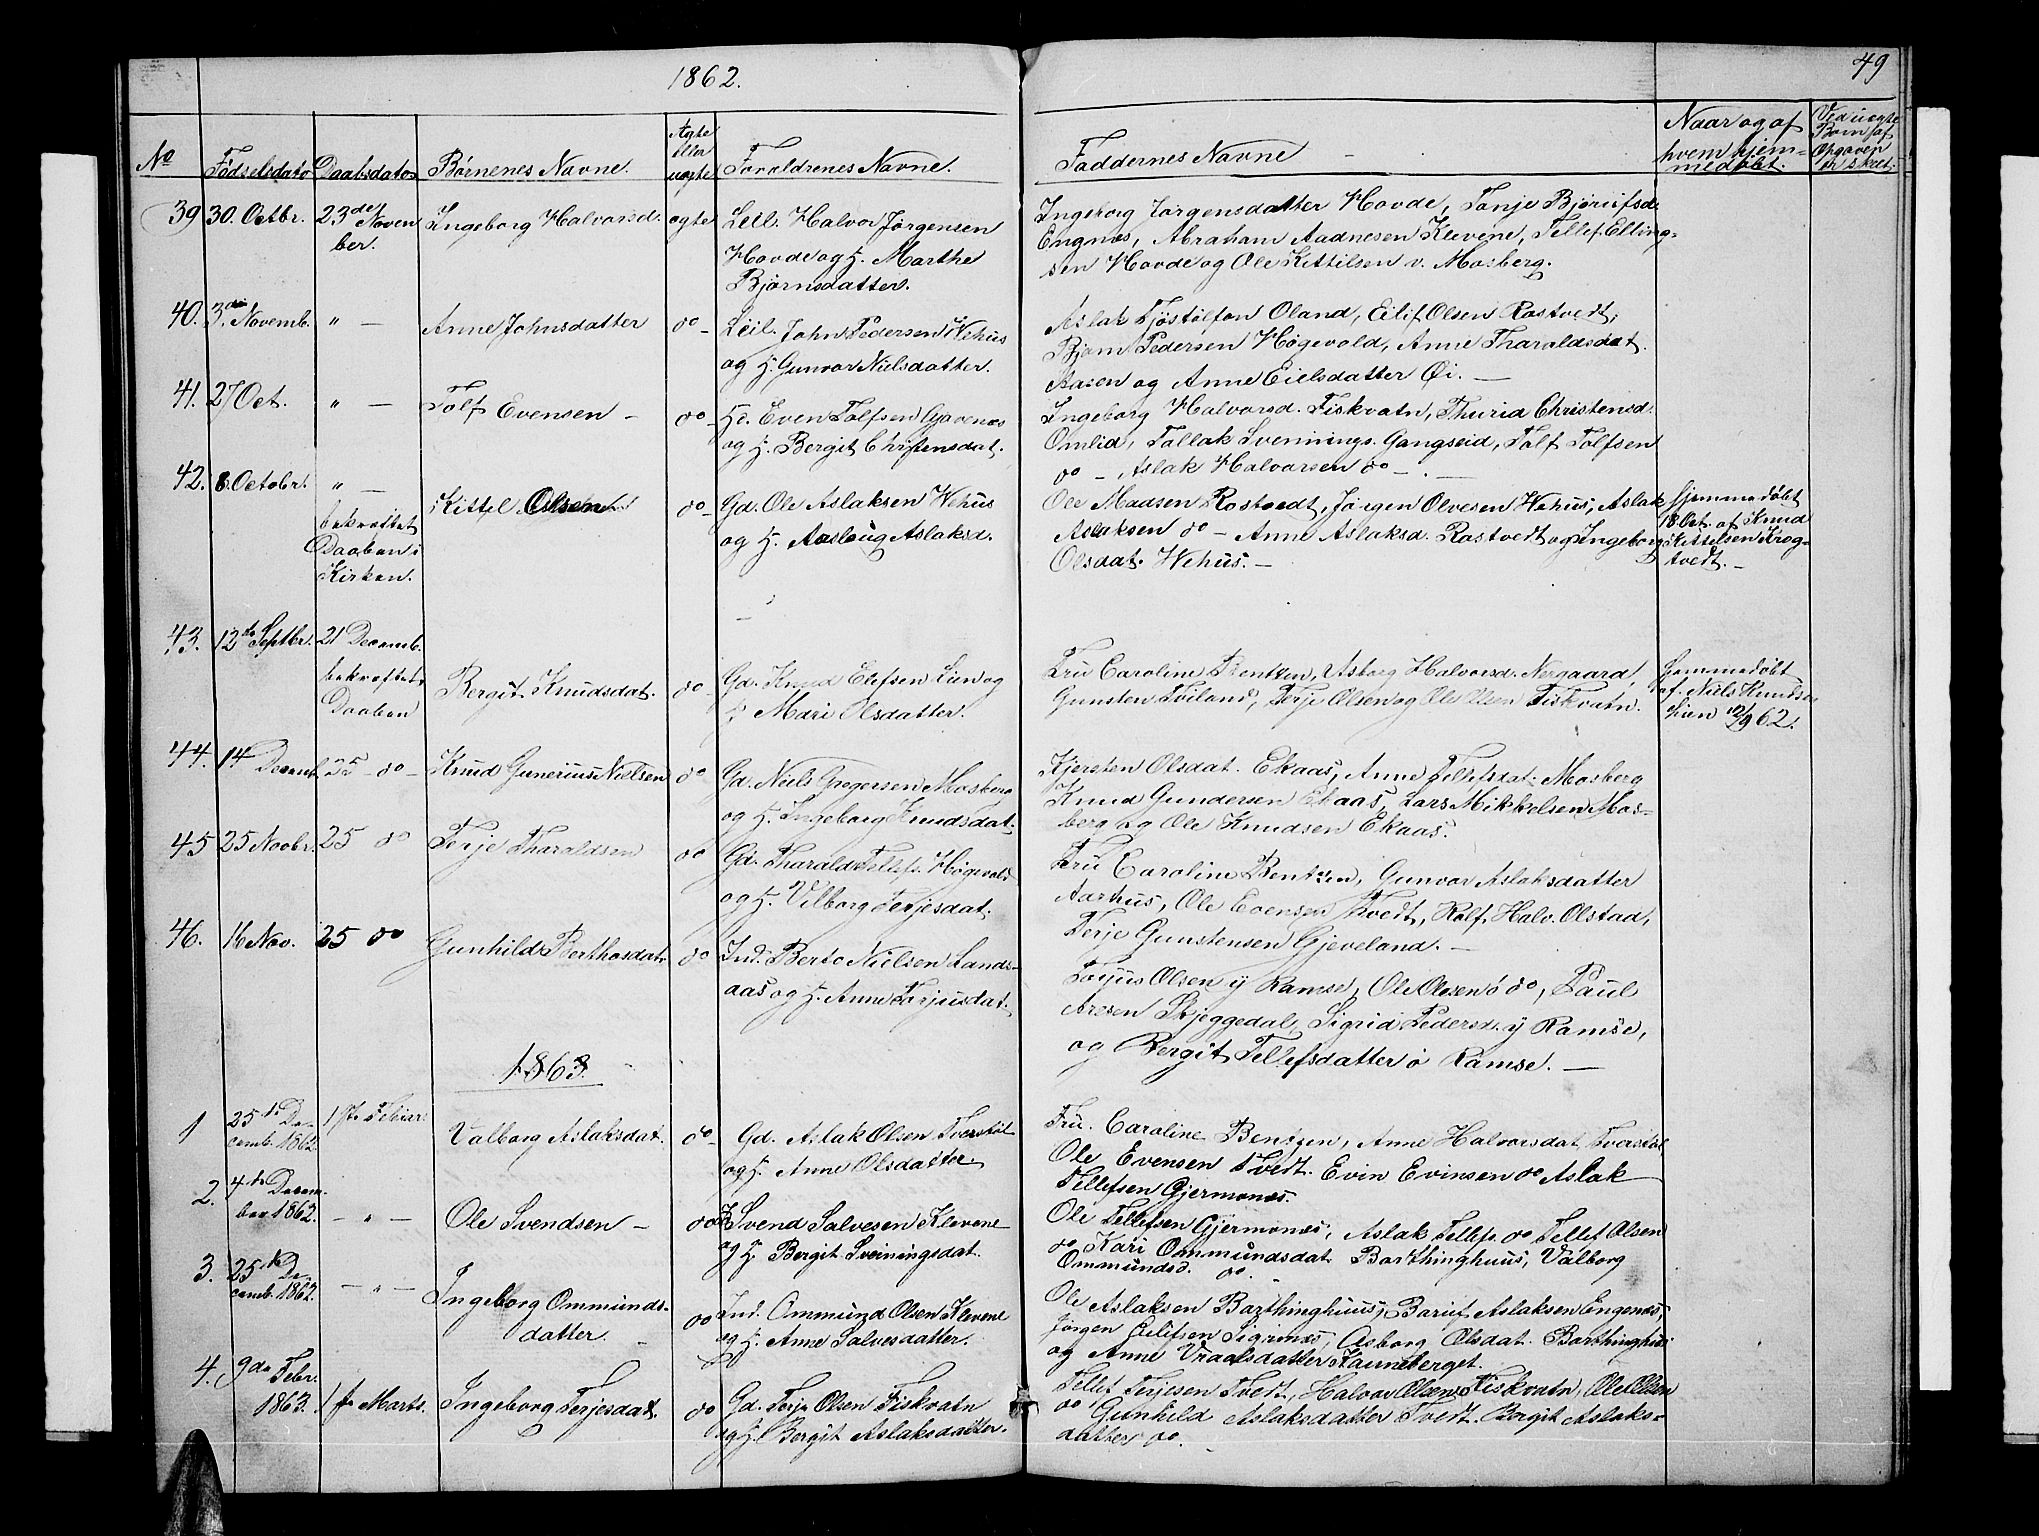 1862.
49
No
Fødselsdato
Daabsdato
Børnenes Navne.
Ægte
eller
uægte
Forældrenes Navne.
Faddernes Navne
Naar og af
hvem hjem-
medøbt.
Ved uægte
Børn af
Opgaven
er skeet.
39 30. Octbr. 23de Novem
ber.
Ingeborg Halvorsd. ægte
Leil. Halvor Jørgensen
Hovde og H. Marthe
Bjørnsdatter.
Ingeborg Jørgensdatter Hovde, Tonje Bjørulfsd.
Engnæs, Abraham Aadnesen Klevene, Tellef Elling-
sen Hovde og Ole Kittilsen v. Mosberg.
40. 3die Novemb. " — Anne Johnsdatter do -
Leil. John Pedersen Wehus
og H. Gunvor Nielsdatter.
Aslak Tjøstolfsn Oland, Eilif Olsen Rostvedt,
Bjørn Pedersen Høgevold, Anne Tharaldsdat.
Aasen og Anne Eielsdatter Øi. —
41. 27 Oct. " — Tolf Evensen - do -
Even Tolfsen Gjævenæs
og H. Bergit Christensdat.
Ingeborg Halvorsd. Fiskvatn, Thurid Christensd.
Omlid, Tallak Svennings. Gangseid, Tolf Tolfsen
do -, Aslak Halvorsen do - .
42. 8. Octobr. " —
bekræftet
Daaben i
Kirken.
Kittel Olsen. do -
Gd. Ole Aslaksen Wehus
og H. Aaslaug Aslaksd.
Ole Madsen Rostvedt, Jørgen Olvesen Wehus, Aslak
Aslaksen do - Anne Aslaksd. Rostvedt og Ingeborg
Olsdat. Wehus. —
Hjemmedøbt
18 Oct. af Knud
Kittelsen Krog-
tvedt. -
43. 12te Septbr. 21 Decemb.
bekræftet
Daaben
Bergit Knudsdat. do -
Gd. Knud Elefsen Lien og
H. Mari Olsdatter.
Fru Caroline Bentzen, Asborg Halvorsd. Nærgaard,
Gunsten Foiland, Terje Olsen og Ole Olsen Fiskvatn.
Hjemmedøbt
af Niels Knudse
Lien 12/9 62.
44. 14 Decemb. 25 - do - Knud Gunerius Nielsen do
Gd. Niels Gregersen Mosberg
og H. Ingeborg Knudsdat.
Kjersten Olsdat. Ekaas, Anne Tellefsdat. Mosberg
Knud Gundersen Ekaas, Lars Mikkelsen Mos-
berg og Ole Knudsen Ekaas.
45 25 Novbr. 25 do Terje Tharaldsen do
Gd. Tharald Tellefs. Høgevold
og H. Vilborg Terjesdat.
Fru Caroline Bentzen, Gunvor Aslaksdatter
Aarhus, Ole Evensen Tvedt, Rolf Halv. Olstad,
Terje Gunstensen Gjeveland. —
46. 16 Nov. 25 do Gunhild Berthosdat. do
Ind. Berto Nielsen Lands-
aas og H. Anne Torjusdat.
Torjus Olsen y Ramse, Ole Olesen ø do, Paul
Aresen Skjeggedal, Sigrid Pedersd. y Ramse,
og Bergit Tellefsdatter ø Ramse. —
1863
1 25de De-
cemb. 1862. 1ste Februar Valborg Aslaksdat. do -
Gd. Aslak Olsen Tverstøl
og H. Anne Olsdatter.
Fru. Caroline Bentzen, Anne Halvorsdat. Tverstøl
Ole Evensen Tvedt. Evin Evinsen do Aslak
Tellefsen Gjermonæs.
2. 4de Decem-
ber 1862. — " — Ole Svendsen - do
Svend Salvesen Klevene
og H. Bergit Sveiningsdat.
Ole Tellefsen Gjermonæs, Aslak Tellefs. do Tellef Olsen
do Kari Ommundsdat. Barthinghuus, Valborg
Ommundsd. do.
3. 25de De-
cemb. 1862. — " — Ingeborg Ommunds-
datter. - do
Ind. Ommund Olsen Klevene
og H. Anne Salvesdatter.
Ole Aslaksen Barthinghuus, Barulf Aslaksen Engenæs,
Jørgen Eilifsen Sigrinæs, Asborg Olsdat. Barthinghuus
og Anne Vraalsdatter Kauneberget.
4. 9de Febr.
1863. 1ste Marts. Ingeborg Terjesdat. do
Gd. Terje Olsen Fiskvatn
og H. Bergit Aslaksdatter.
Tellef Terjesen Tvedt, Halvor Olsen Fiskvatn, Ole Olsen
do Gunhild Aslaksdatter Tvedt. Bergit Aslaks-
datter do.